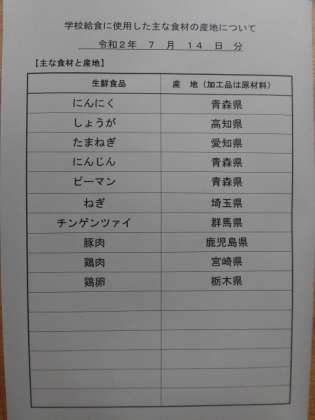 学校給食に使用した主な食材の産地について
令和2年 7 月 14 日 分
【主な食材と産地】
生鮮食品 産 地（加工品は原材料）
にんにく 青森県
しょうが 高知県
たまねぎ 愛知県
にんじん 青森県
ピーマン 青森県
ねぎ 埼玉県
チンゲンツァイ 群馬県
豚肉 鹿児島県
鶏肉 宮崎県
鶏卵 栃木県